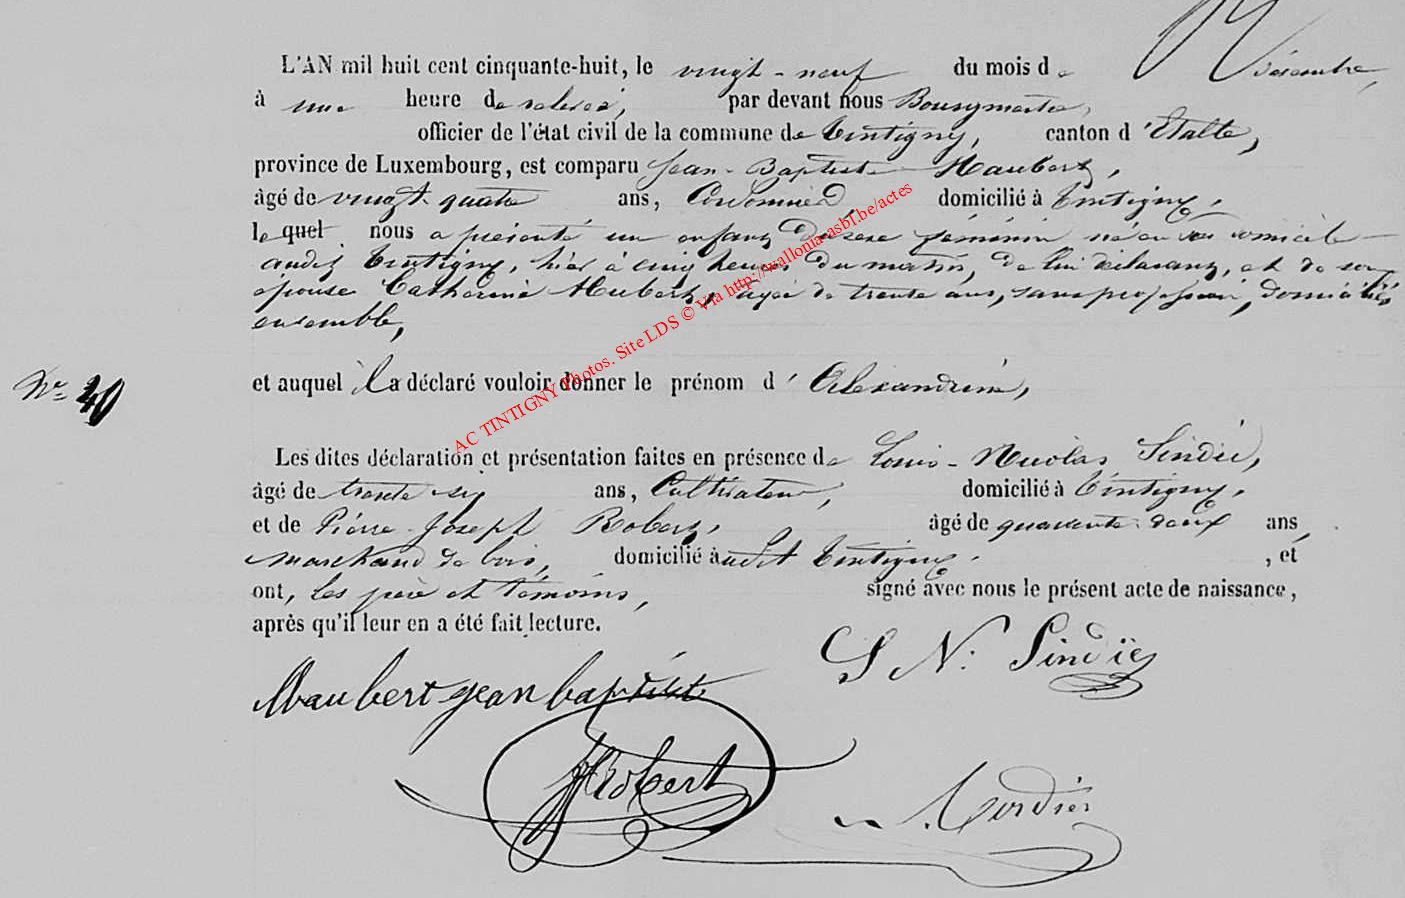 L'AN mil huit cent cinquante-huit, le vingt-neuf du mois de décembre,
à une heure de relevée, par devant nous Bourgmestre,
officier de l'état civil de la commune de Tintigny, canton d'Etalle,
province de Luxembourg, est comparu Jean-Baptiste Maubert,
âgé de vingt quatre ans, Cordonnier, domicilié à Tintigny,
lequel nous a présenté un enfant du sexe féminin né en son domicile
audit Tintigny, hier à cinq heures du matin, de lui déclarant, et de son
épouse Catherine Hubert, agée de trente ans, sans profession, domiciliés
ensemble,
et auquel il a déclaré vouloir donner le prénom d'Alexandrine,
N° 40
Les dites déclaration et présentation faites en présence de Louis-Nicolas Sindié,
âgé de trente six ans, Cultivateur, domicilié à Tintigny,
et de Pierre-Joseph Robert, âgé de quarante-deux ans,
marchand de bois, domicilié audit Tintigny, , et
ont, les père et témoins, signé avec nous le présent acte de naissance,
après qu'il leur en a été fait lecture.
L N. Sindié
Maubert jean baptiste
PJRobert
AC TINTIGNY Photos. Site LDS © Via http://wallonia-asbl.be/actes